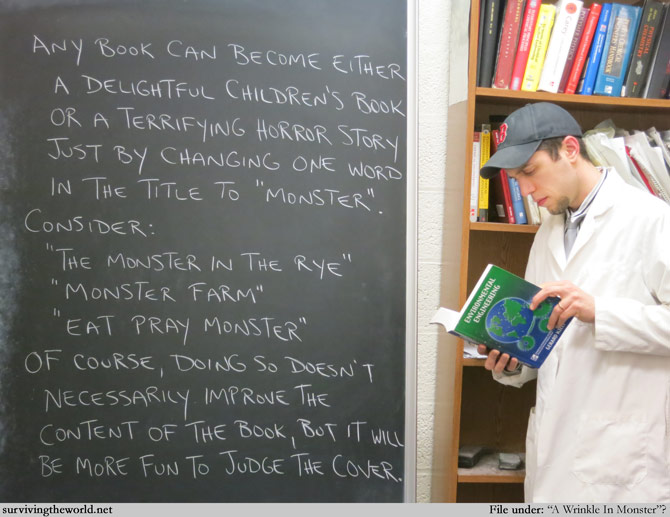 ANY BOOK CAN BECOME EITHER
A DELIGHTFUL CHILDREN'S BOOK
OR A TERRIFYING HORROR STORY
JUST BY CHANGING ONE WORD
IN THE TITLE TO "MONSTER".
CONSIDER:
"THE MONSTER IN THE RYE"
"MONSTER FARM"
"EAT PRAY MONSTER"
OF COURSE, DOING SO DOESN'T
NECESSARILY IMPROVE THE
CONTENT OF THE BOOK, BUT IT WILL
BE MORE FUN TO JUDGE THE COVER.
ENVIRONMENTAL
ENGINEERING
survivingtheworld.net
File under: "A Wrinkle In Monster"?